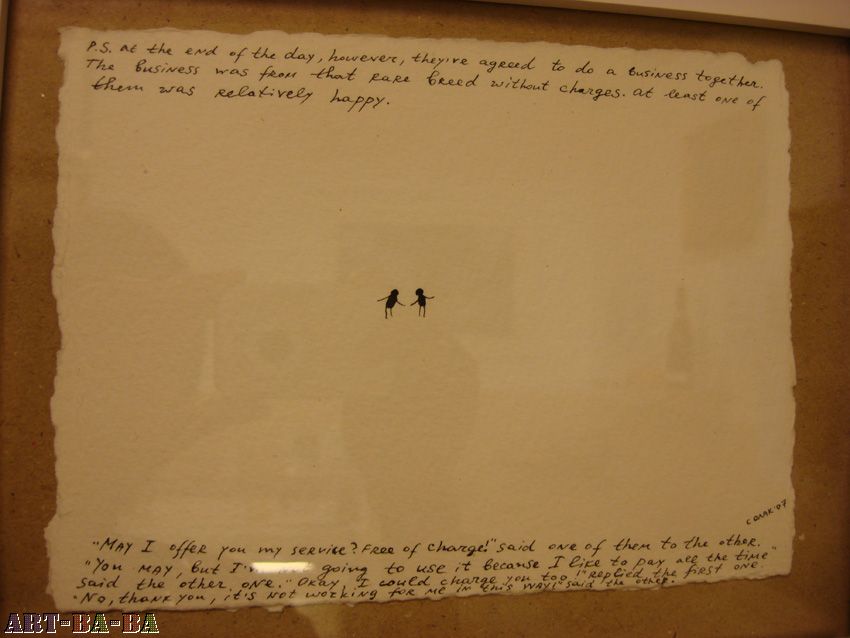 P.S. at the end of the day, however, they've agreed to do a business together.
The business was from that rare breed without charges. at least one of
them was relatively happy.
'07
"May I offer you my service? Free of charge!" said one of them to the other.
"You may, but I' going to use it because I like to pay all the time"
said the other one. "Okay, I could charge you too!" replied the first one.
"No, thank you, it's not working for me in this way!" said the other.
ART-BA-BA